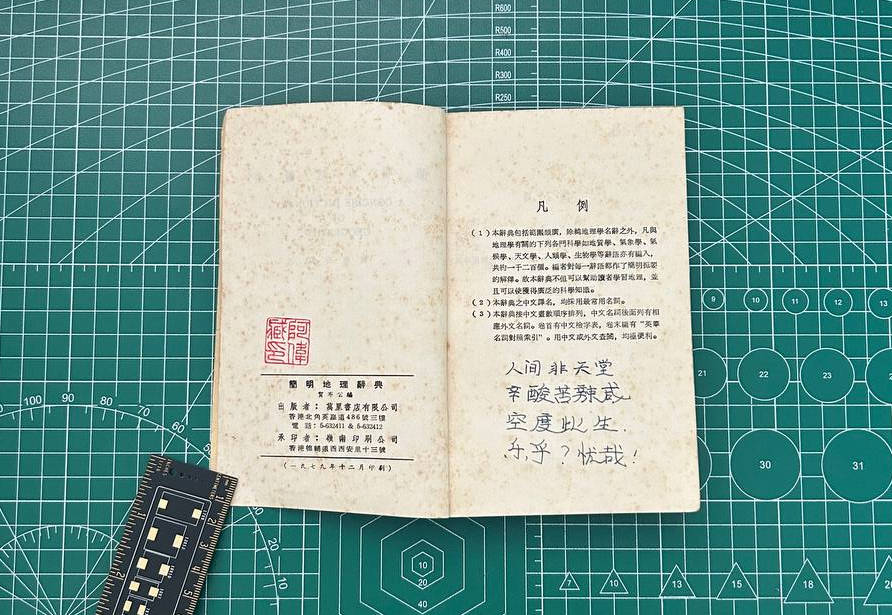 阿偉
藏印
簡明地理辭典
出版者：萬里書店有限公司
香港北角英皇道486號三樓
電話：5-632411 & 5-632412
承印者：嶺南印刷公司
香港德輔道西西安里十三號
（一九七九年十二月印刷）
凡例
（1）本辭典包括範圍頗廣，除純地理學名辭之外，凡與
地理學有關的下列各門科學如地質學、氣象學、氣
候學、天文學、人類學、生物學等辭語亦有編入，
共約一千二百個。編者對每一辭語都作了簡明扼要
的解釋。故本辭典不但可以幫助讀者學習地理，並
且可以使獲得廣泛的科學知識。
（2）本辭典之中文譯名，均採用最常用名詞。
（3）本辭典按中文畫數順序排列，中文名詞後面列有相
應外文名詞。卷首有中文檢字表，卷末編有“英華
名詞對檢索引”。用中文或外文查閱，均極便利。
人间非天堂
辛酸苦辣咸
空度此生.
乐乎？忧哉！
R600
R500
R400
R350
R300
R250
9
10
11
12
13
21
22
23
24
30
31
100
90
80
70
110
20
10
10
20
40
7
10
13
15
18